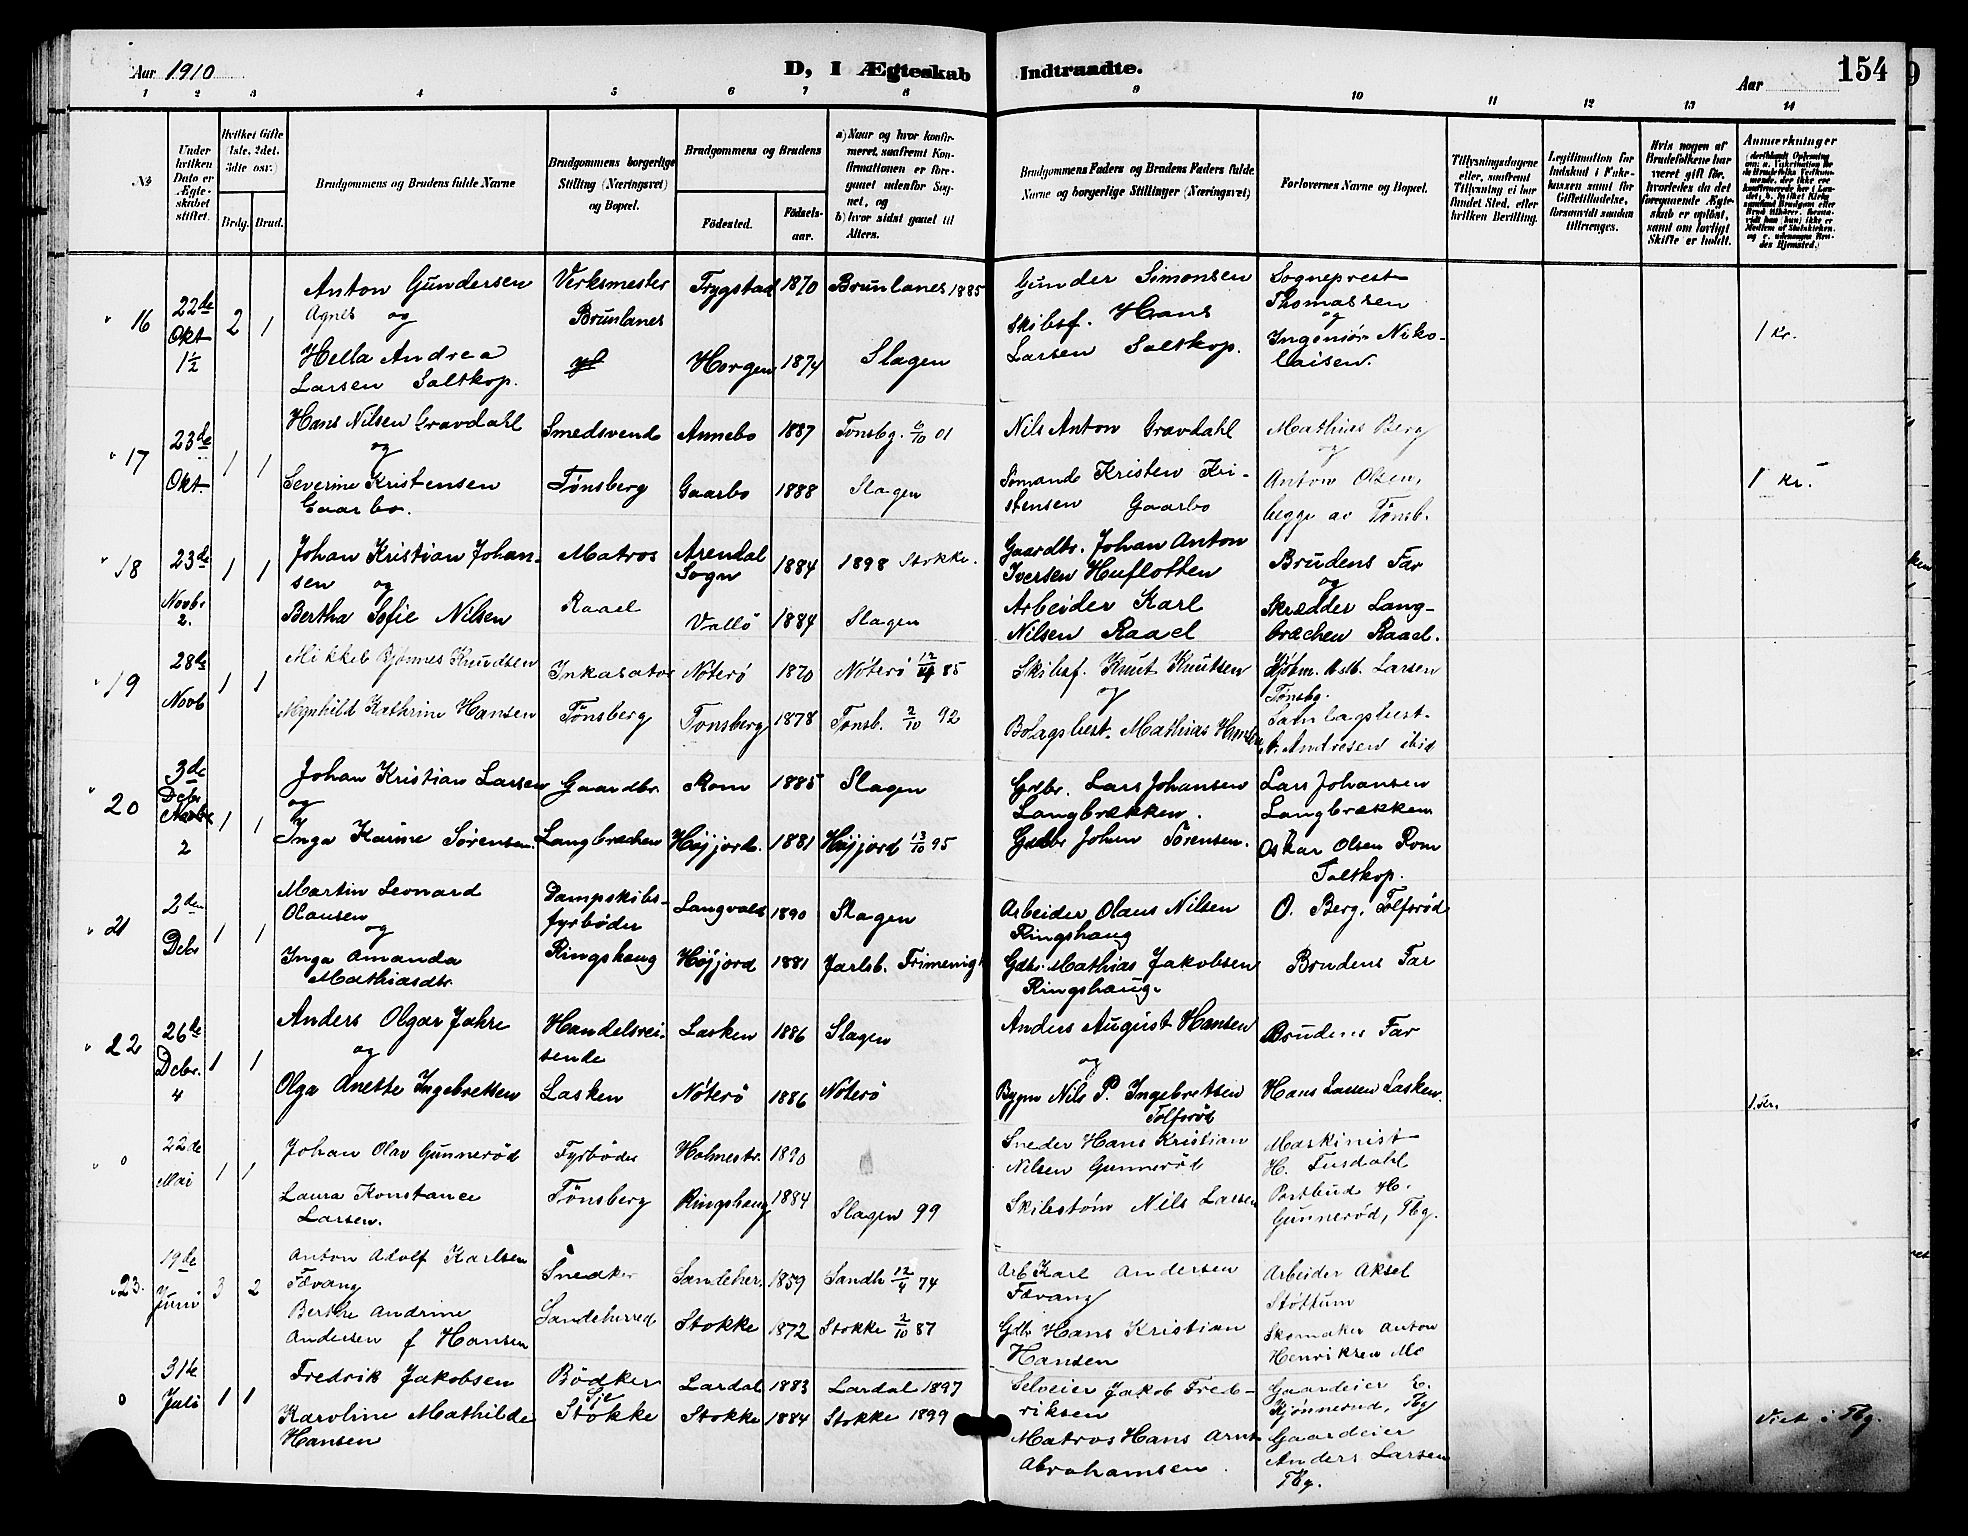 Aar 1910
D, I Ægteskab Indtraadte.
Aar
154
1 2 3 4 5 6 7 8 9 10 11 12 13 14
No
Under hvilken Dato er Ægteskabet stiftet.
Hvilket Gifte (1ste, 2det, 3die osv.)
Brdg. Brud.
Brudgommens og Brudens fulde Navne
Brudgommens borgerlige Stilling (Næringsvei) og Bopæl.
Brudgommens og Brudens
Födested.
Födselsaar.
a) Naar og hvor konfirmeret, saafremt Konfirmationen er foregaaet udenfor Sognet, og
b) hvor sidst gaaet til Alters.
Brudgommens Faders og Brudens Faders fulde Navne og borgerlige Stillinger (Næringsvei)
Forlovernes Navne og Bopæl.
Tillysningsdagene eller, saafremt Tillysning ei har fundet Sted, efter hvilken Bevilling.
Legitimation for Indskud i Enkekassen samt for Giftetilladelse, forsaavidt saadan tiltrænges.
Hvis nogen af Brudefolkene har været gift för, hvorledes da det foregaaende Ægteskab er oplöst, samt om lovligt Skifte er holdt.
Anmærkninger
" 16 22de Okt 1½ 2 1
Anton Gundersen Verksmester Trygstad 1870 Brunlanes 1885 Gunder Simonsen Sogneprest Thomassen
Agnes og Brunlanes og
Hella Andrea Larsen Saltkop. Horgen 1874 Slagen Skibsf. Hans Larsen Saltkop. Ingeniör Nikolaisen. 1 Kr.
" 17 23de Okt. 1 1
Hans Nilsen Gravdahl Smedsvend Annebo 1887 Tønsbg. 6/10 01 Nils Anton Gravdahl Mathias Berg
og og
Severine Kristensen Gaarbo. Tønsberg Gaarbo 1888 Slagen Sømand Kristen Kristensen Gaarbo Anton Olsen, begge av Tønsb. 1 Kr.
" 18 23de Novbr 2. 1 1
Johan Kristian Johansen Matros Arendal Sogn 1884 1898 Stokke. Gaardbr. Johan Anton Iversen Huflotten Brudens Far
og og
Bertha Sofie Nilsen Raael Vallö 1884 Slagen Arbeider Karl Nilsen Raael Skrædder Langbræchen Raael.
" 19 28de Novb 1 1
Mikkel Bjønnes Knudsen Inkasator Nöterö 1870 Nöterö 12/4 85 Skibsf. Knut Knutsen Kjöbm. Larsen Tönsbg.
og
Mynhild Kathrine Hansen Tönsberg Tonsberg 1878 Tønsb. 2/10 92 Bolagsbest. Mathias Hansen Samlagsbest. A. Andresen ibid
" 20 3de Debr 2 1 1
Johan Kristian Larsen Gaardbr. Rom 1885 Slagen Grdbr. Lars Johansen Langbrækken. Lars Johansen Langbrækken
og
Inga Karine Sørensen. Langbræchen Høyjord. 1881 Høyjord 13/10 95 Gdbr Johan Sörensen. Oskar Olsen Rom Saltkop.
" 21 2den Debr 1 1
Martin Leonard Olausen Dampskibsfyrbøder Langvold 1890 Slagen Arbeider Olaus Nilsen Ringshaug O. Berg, Tolfsrød
og
Inga Amanda Mathiasdtr. Ringshaug Høyjord 1881 Jarlsb. Frimenigh Gdbr. Mathias Jakobsen Ringshaug. Brudens Far
" 22 26de Debr. 4 1 1
Anders Olgar Jahre Handelsreisende Lasken 1886 Slagen Anders August Hansen Brudens Far
og og
Olga Anette Ingebretsen Lasken Nöterö 1886 Nöterö Bygm Nils P. Ingebretsen Tolfsrød Hans Larsen Lasken. 1 Kr.
" 0 22de Mai 1 1
Johan Olav Gunnerød Fyrbøder Holmestr. 1890 Sneder Hans Kristian Nilsen Gunnerød Maskinist H. Tusdahl
Laura Konstance Larsen. Tönsberg Ringshaug 1884 Slagen 99 Skibstöm Nils Larsen Postbud H. Gunnerød, Tbg.
" 23. 19de Juni 3 2
Anton Adolf Karlsen Fævang Snedker Sandeher. 1859 Sandh 12/4 74 Arb Karl Andersen Fævang Arbeider Aksel Støttum
Berthe Andrine Andersen f Hansen Sandeherred Stokke 1872 Stokke 2/10 87 Gdbr Hans Kristian Hansen Skomaker Anton Henriksen Mo
0 31te Juli 1 1
Fredrik Jakobsen Bödker Lardal 1883 Lardal 1897 Selveier Jakob Fredriksen Gaardeier E. Kjønnerud, Tbg
Karoline Mathilde Hansen Stokke Stokke 1884 Stokke 1899 Matros Hans Arnt Abrahamsen. Gaardeier Anders Larsen Tbg. Viet i Tbg.